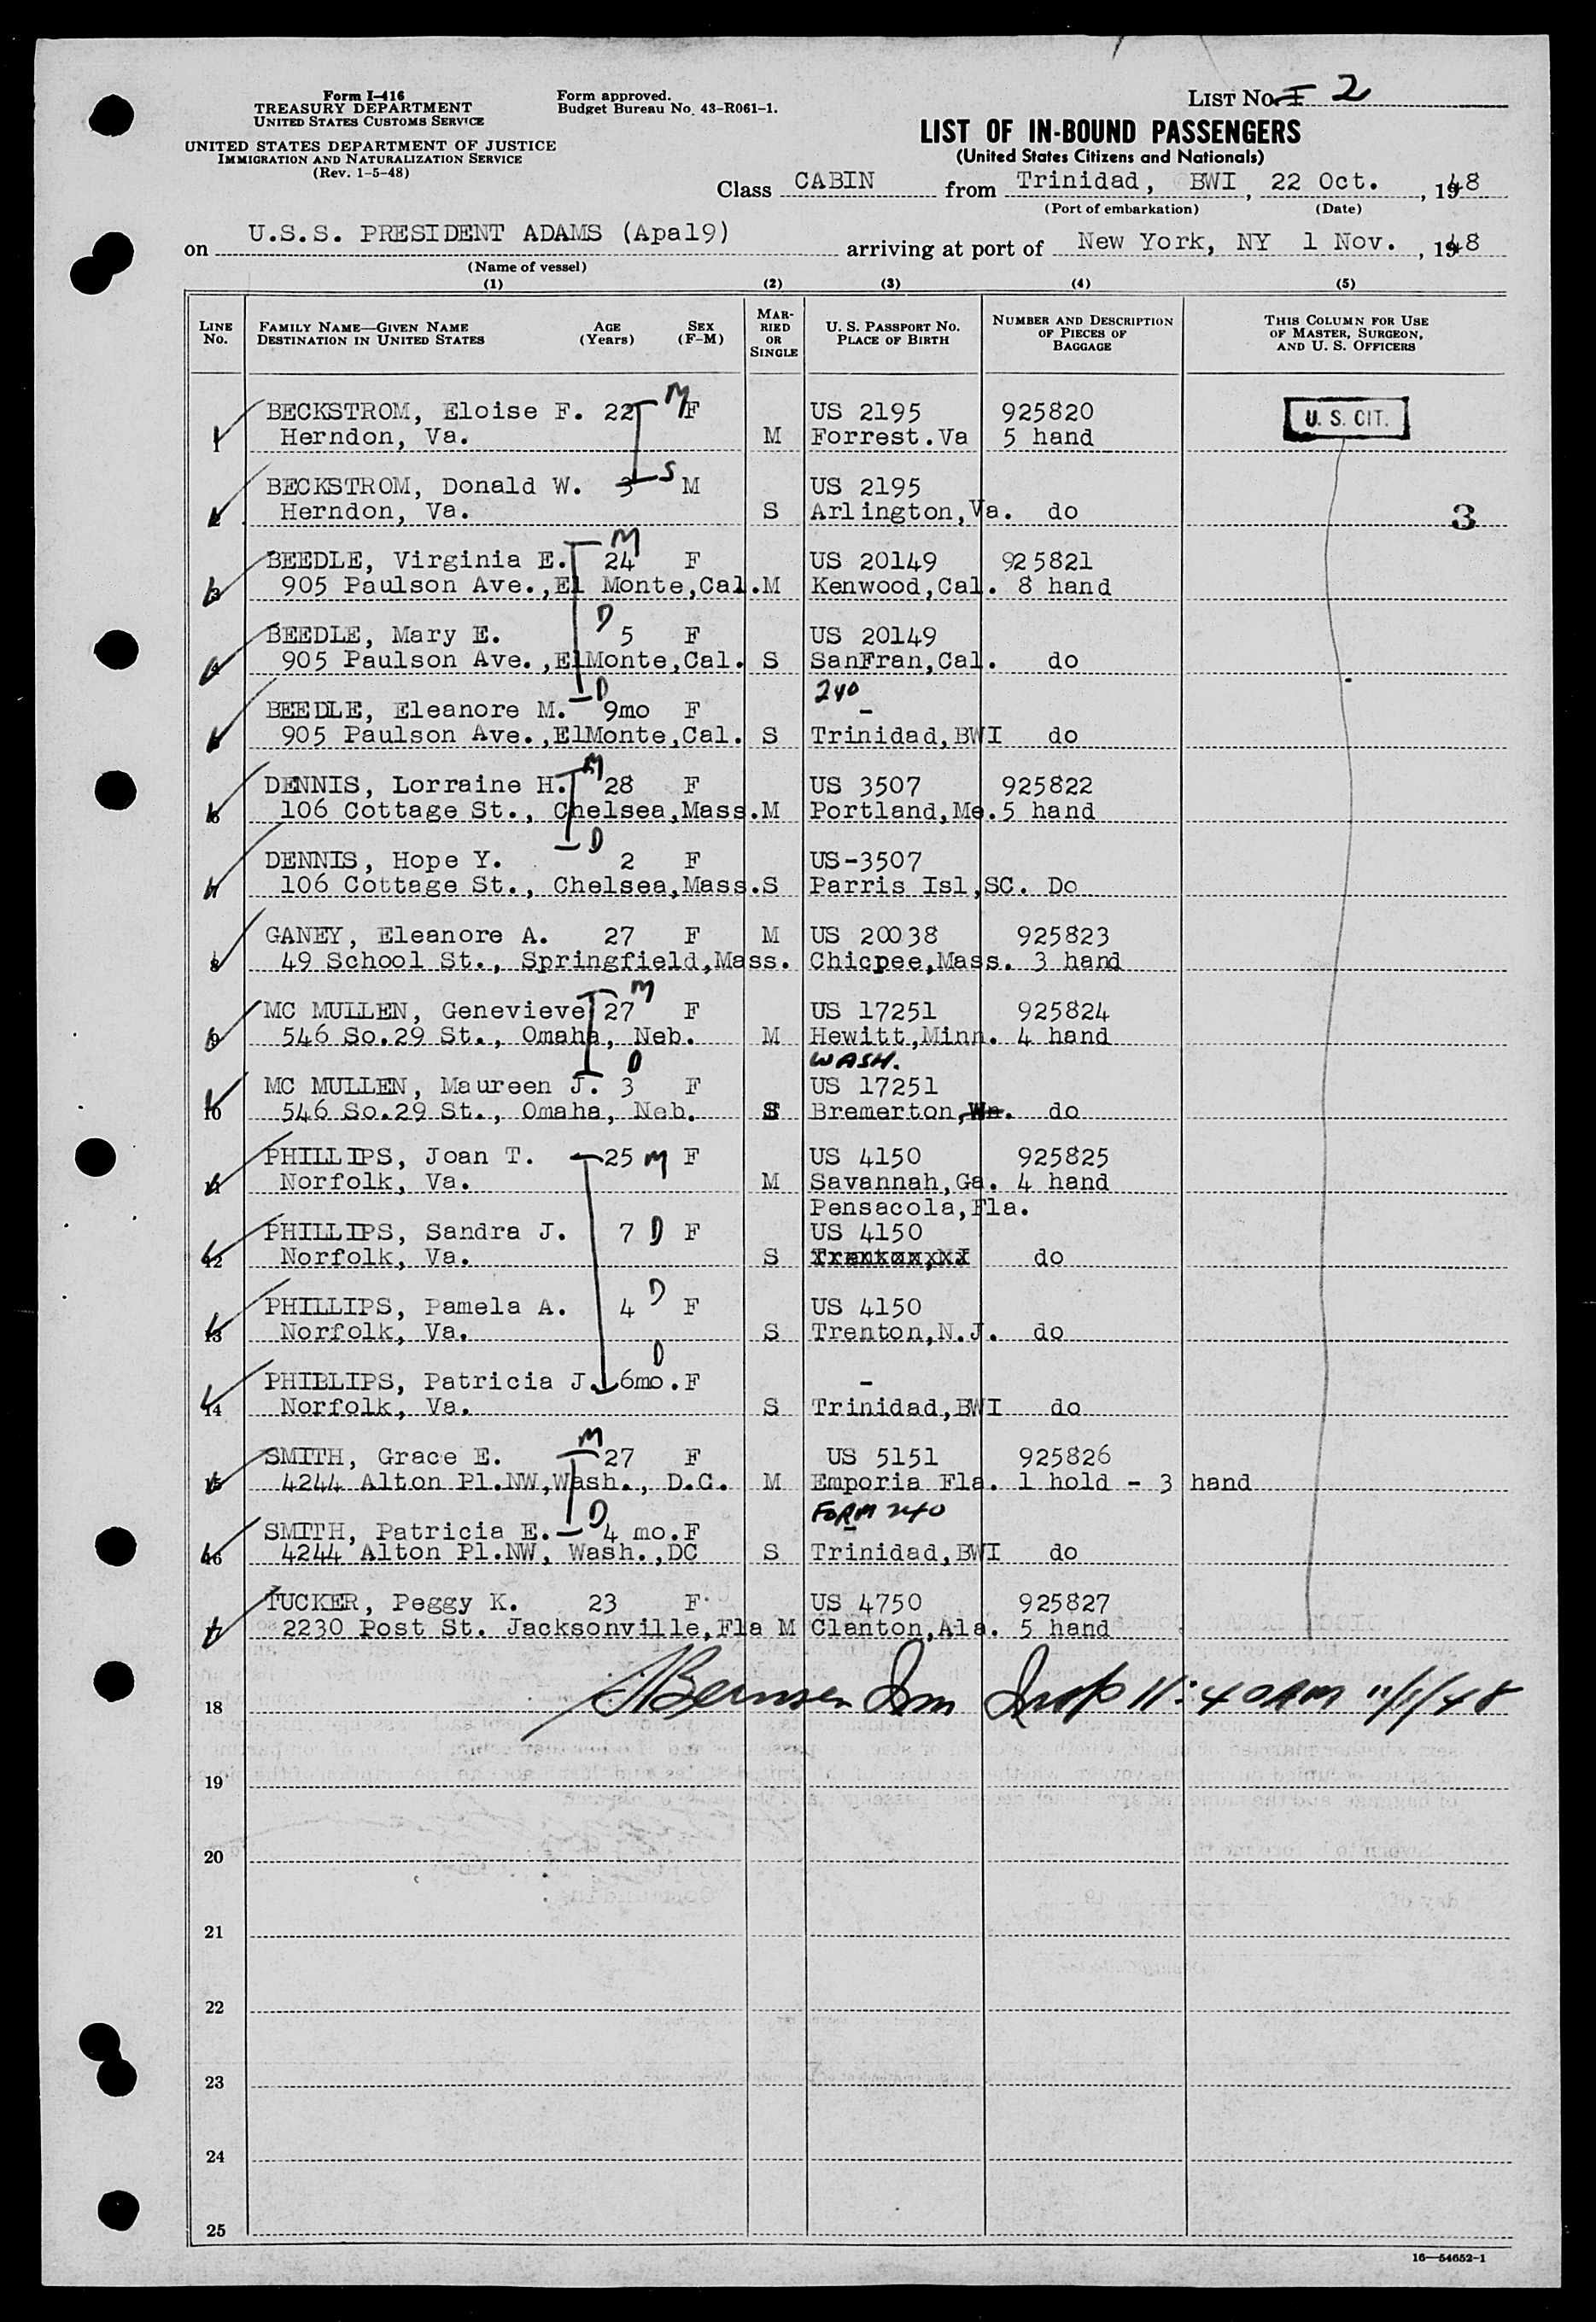 Form I-416
TREASURY DEPARTMENT
UNITED STATES CUSTOMS SERVICE
UNITED STATES DEPARTMENT OF JUSTICE
IMMIGRATION AND NATURALIZATION SERVICE
(Rev. 1-5-48)
Form approved.
Budget Bureau No. 43-R061-1.
LIST No. 2
LIST OF IN-BOUND PASSENGERS
(United States Citizens and Nationals)
Class CABIN from Trinidad, BWI, 22 Oct., 1948
(Port of embarkation) (Date)
on U.S.S. PRESIDENT ADAMS (Apa19) arriving at port of New York, NY 1 Nov., 1948
(Name of vessel)
(1) (2) (3) (4) (5)
LINE No. FAMILY NAME—GIVEN NAME DESTINATION IN UNITED STATES AGE (Years) SEX (F-M) MARRIED OR SINGLE U. S. PASSPORT NO. PLACE OF BIRTH NUMBER AND DESCRIPTION OF PIECES OF BAGGAGE THIS COLUMN FOR USE OF MASTER, SURGEON, AND U. S. OFFICERS
BECKSTROM, Eloise F. 22 M F US 2195 925820 U. S. CIT.
1 Herndon, Va. M Forrest.Va 5 hand
BECKSTROM, Donald W. 3 S M US 2195
Herndon, Va. S Arlington,Va. do 3
M
BEEDLE, Virginia E. 24 F US 20149 925821
3 905 Paulson Ave.,El Monte,Cal. M Kenwood,Cal. 8 hand
D
BEEDLE, Mary E. 5 F US 20149
4 905 Paulson Ave.,ElMonte,Cal. S SanFran,Cal. do
D 240
BEEDLE, Eleanore M. 9mo F -
905 Paulson Ave.,ElMonte,Cal. S Trinidad,BWI do
M
DENNIS, Lorraine H. 28 F US 3507 925822
6 106 Cottage St., Chelsea,Mass. M Portland,Me. 5 hand
D
DENNIS, Hope Y. 2 F US-3507
106 Cottage St., Chelsea,Mass. S Parris Isl,SC. Do
GANEY, Eleanore A. 27 F M US 20038 925823
8 49 School St., Springfield,Mass. Chicpee,Mass. 3 hand
M
MC MULLEN, Genevieve 27 F US 17251 925824
9 546 So.29 St., Omaha, Neb. M Hewitt,Minn. 4 hand
D WASH.
MC MULLEN, Maureen J. 3 F US 17251
10 546 So.29 St., Omaha, Neb. S Bremerton,Wn. do
PHILLIPS, Joan T. 25 M F US 4150 925825
11 Norfolk, Va. M Savannah,Ga. 4 hand
Pensacola,Fla.
PHILLIPS, Sandra J. 7 D F US 4150
12 Norfolk, Va. S Trenton,NJ do
PHILLIPS, Pamela A. 4 D F US 4150
13 Norfolk, Va. S Trenton,N.J. do
D
PHILLIPS, Patricia J. 6mo. F -
14 Norfolk, Va. S Trinidad,BWI do
M
SMITH, Grace E. 27 F US 5151 925826
15 4244 Alton Pl.NW,Wash., D.C. M Emporia Fla. 1 hold - 3 hand
D FORM 240
SMITH, Patricia E. 4 mo. F -
16 4244 Alton Pl.NW, Wash.,DC S Trinidad,BWI do
TUCKER, Peggy K. 23 F US 4750 925827
2230 Post St. Jacksonville,Fla M Clanton,Ala. 5 hand
18 Imm Insp 11:40AM 11/1/48
19
20
21
22
23
24
25
16—54652-1